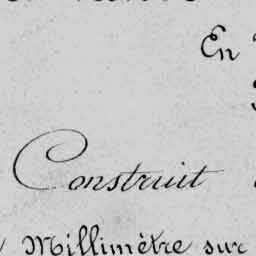 En
Construit
Millimètre sur